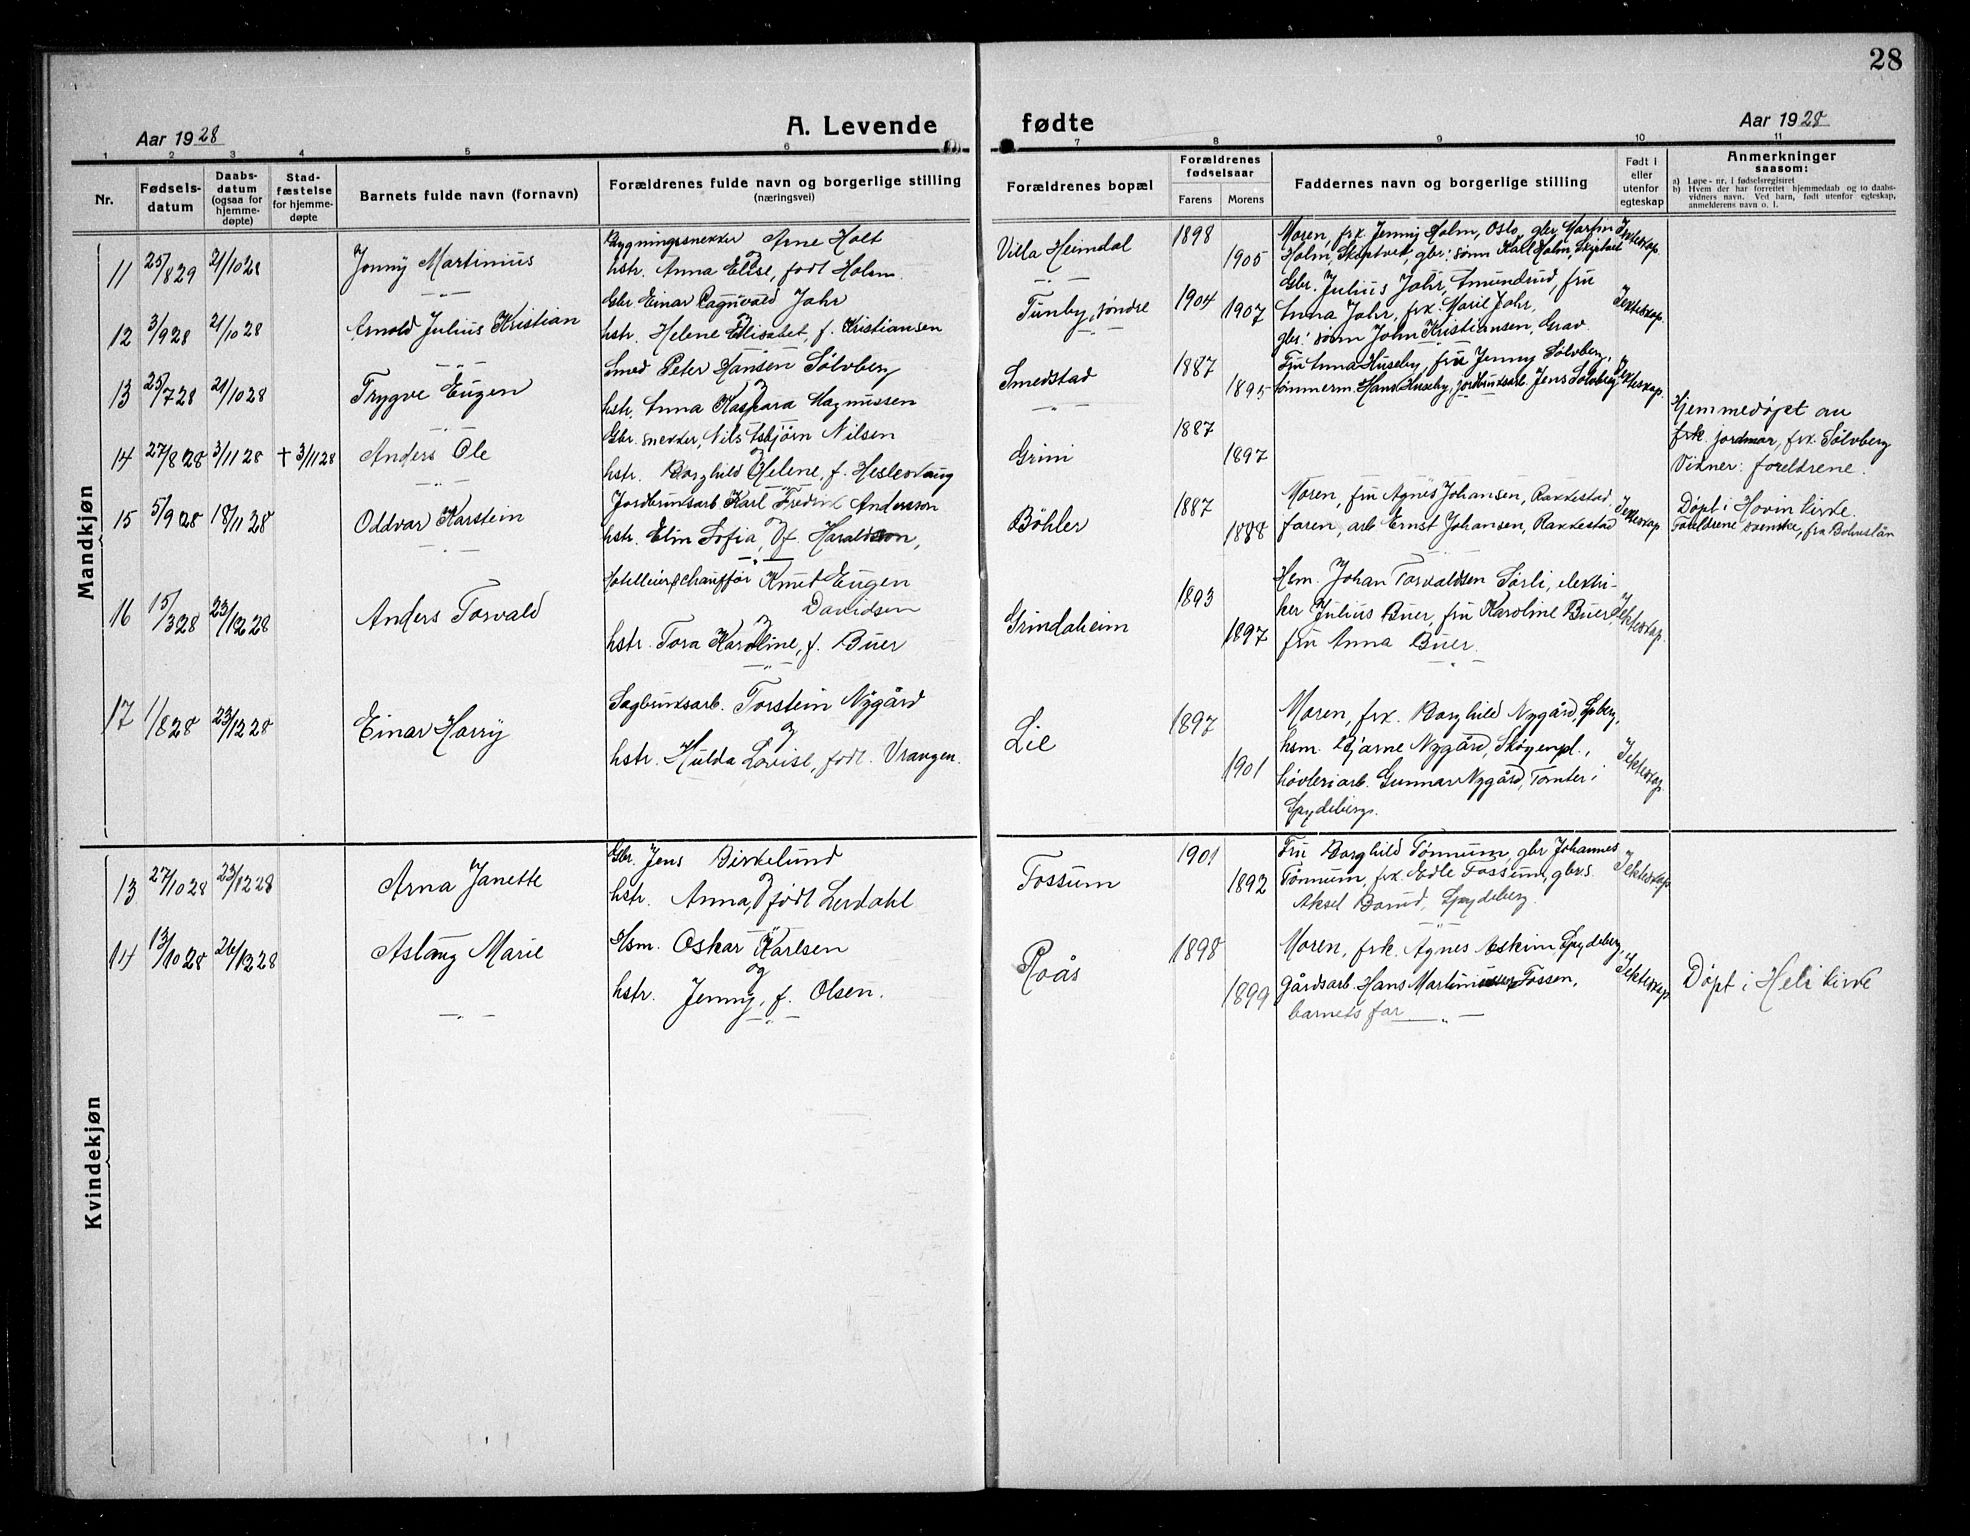 28
Aar 1928
A. Levende
fødte
Aar 1928
1 2 3 4 5 6 7 8 9 10 11
Nr.
Fødsels-
datum
Daabs-
datum
(ogsaa for
hjemme-
døpte)
Stad-
fæstelse
for hjemme-
døpte
Barnets fulde navn (fornavn)
Forældrenes fulde navn og borgerlige stilling
(næringsvei)
Forældrenes bopæl
Forældrenes
fødselsaar
Farens
Morens
Faddernes navn og borgerlige stilling
Født i
eller
utenfor
egteskap
Anmerkninger
saasom:
a) Løpe-nr. i fødselsregistret
b) Hvem der har forrettet hjemmedaab og to daabs-
vidners navn. Ved barn, født utenfor egteskap,
anmelderens navn o. l.
Mandkjøn
11 25/8 29 21/10 28
Jonny Martinius
Bygningssnekker Arne Holt
og
hstr. Anna Elise, født Holm.
Villa Heimdal
1898
1905
Moren, frk. Jenny Holm, Oslo, gbr Martin
Holm, Skiptvet, gbr: sønn Karl Holm, Skiptvet
I ekteskap.
12 3/9 28 21/10 28
Arnold Julius Kristian
Gbr Einar Ragnvald Johr
og
hstr. Helene Elisabet, f. Kristiansen
Tunby, søndre
1904
1907
Gbr. Julius Johr, Amundrud, fru
Anna Johr, frk. Marie Johr,
gbr: sønn John Kristiansen, Grav.
I ekteskap.
13 25/7 28 21/10 28
Trygve Eugen
Smed Peter Hansen Sølvberg
og
hstr. Anna Kaspara Magnussen
Smedstad
1887
1895
Fru Anna Huseby, fru Jenny Sølvberg,
tømmerm. Hans Huseby, jordbruksarb. Jens Sølvberg,
I ekteskap.
14 27/8 28 3/11 28 † 3/11 28
Anders Ole
Gbr snekker, Nils Asbjørn Nilsen
og
hstr. Borghild Helene, f. Heslevaug
Grini
1887
1897
Hjemmedøpt av
frk. jordmor, frk. Sølvberg
Vidner: foreldrene.
15 5/9 28 18/11 28
Oddvar Karstein
Jordbruksarb Karl Fredrik Andersson
og
hstr. Elin Sofia, f. Haraldsson,
Bøhler
1887
1888
Moren, fru Agnes Johansen, Rakkestad
faren, arb Ernst Johansen, Rakkestad
I ekteskap.
Døpt i Hovin kirke.
Foreldrene svenske, fra Bohuslän
16 15/3 28 23/12 28
Anders Torvald
Hotelleier, chauffør Knut Eugen
Davidsen
og
hstr. Tora Karoline, f. Buer
Grindaheim
1893
1897
Hsm. Johan Torvaldsen Sørli, elektri-
ker Julius Buer, fru Karoline Buer,
fru Anna Buer.
I ekteskap.
17 1/8 28 23/12 28
Einar Harry
Sagbruksarb. Torstein Nygård
og
hstr. Hulda Lovise, født Vrangen.
Lie
1897
1901
Moren, frk. Borghild Nygård, Spberg,
hsm. Bjarne Nygård, Skogenpl.,
høvleriarb. Gunnar Nygård, Tomter i
Spydeberg.
I ekteskap.
Kvindekjøn
13 27/10 28 23/12 28
Arna Janette
Gbr. Jens Birkelund
og
hstr. Anna, født Lerdahl
Fossum
1901
1892
Fru Borghild Tønnum, gbr Johannes
Tønnum, frk. Edle Fossum, gbrs.
Aksel Borud, Spydeberg.
I ekteskap
14 13/10 28 26/12 28
Aslaug Marie
Hsm. Oskar Karlsen
og
hstr. Jenny, f. Olsen.
Roås
1898
1899
Moren, frk. Agnes Askim, Spydeberg,
gårdsarb. Hans Martinussen Fossen,
barnets far
I ekteskap
Døpt i Heli kirke